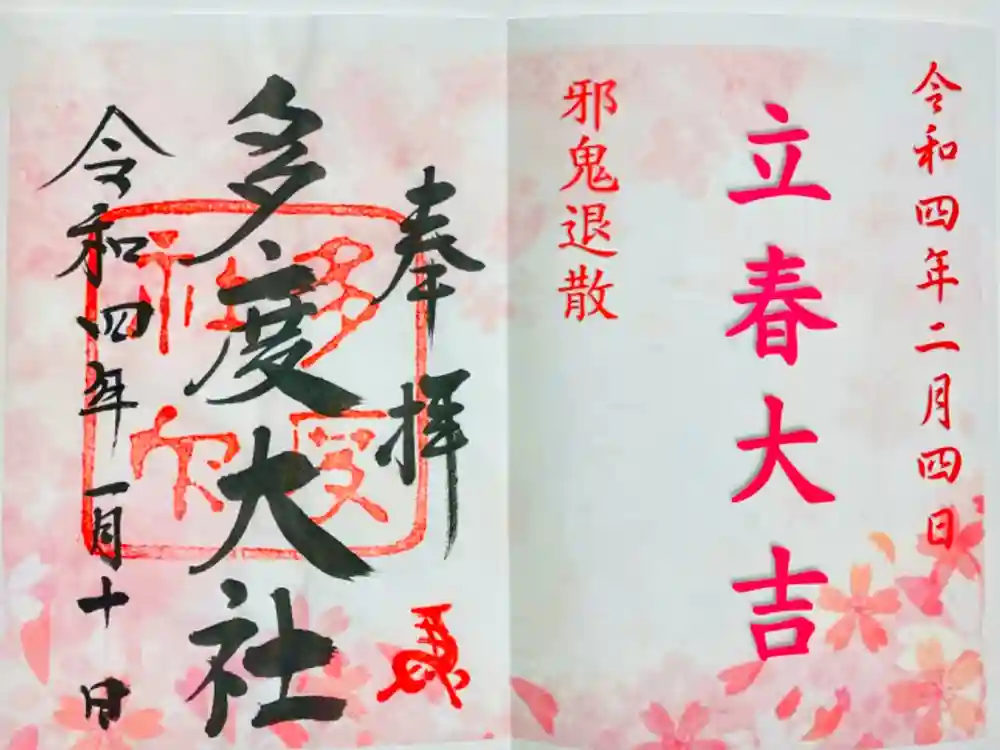 令和四年二月四日
立春大吉
邪鬼退散
奉拝
多度大社
令和四年一月十日